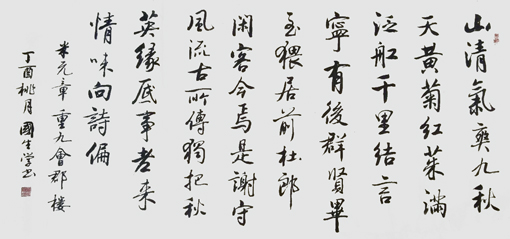 山清氣爽九秋
天黃菊紅茱滿
泛舡千里結言
寧有後群賢畢
至猥居前杜郎
閑客今焉是謝守
風流古所傳獨把秋
英緣底事老来
情味向詩偏
米元章重九會郡樓
丁酉桃月國生学书